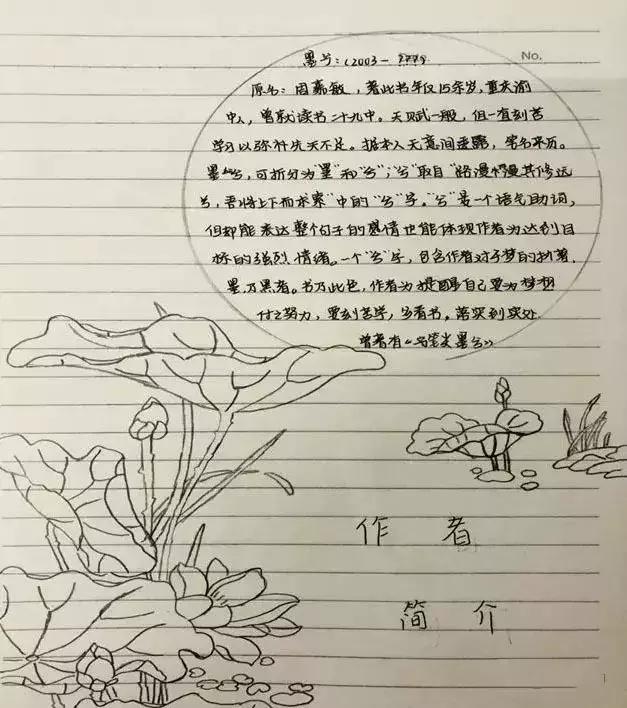 No.
墨兮:(2003-????
原名:周嘉敏,著此书年仅15余岁,重庆渝
中人,曾就读书二十九中。天赋一般,但一直刻苦
学习以弥补先天不足。据本人无意间透露,笔名来历。
墨兮,可拆分为“墨”和“兮”;“兮”取自“路漫漫其修远
兮,吾将上下而求索”中的“兮”字。“兮”是一个语气助词,
但却能表达整个句子的感情也能体现作者为达到目
标的强烈情绪。一个“兮”字,包含作者对于梦的执着.
墨,乃黑者。书乃此色,作者为提醒自己要为梦想
付之努力,要刻苦学,多看书。落实到实处.
曾著有《笔尖墨兮》
作者
简介